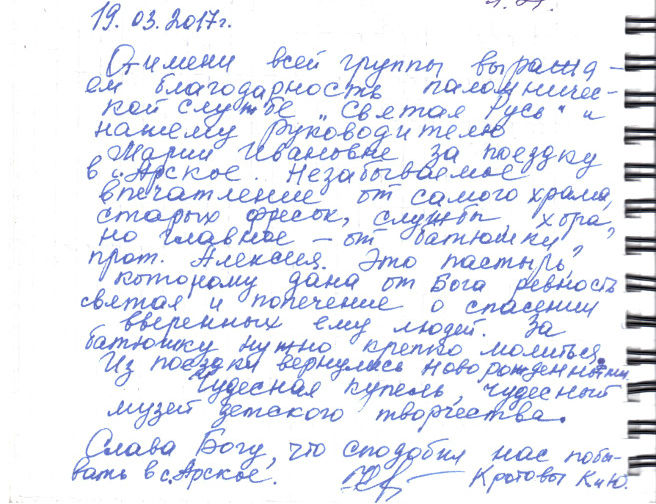 19.03.2017г.
От имени всей группы выража-
ем благодарность паломничес-
кой службе „Святая Русь" и
нашему руководителю
Марии Ивановне за поездку
в с. Арское. Незабываемое
впечатление от самого храма,
старых фресок, службы, хора,
но главное – от батюшки,
прот. Алексия. Это пастырь,
которому дана от Бога ревность
святая и попечение о спасении
вверенных ему людей. За
батюшку нужно крепко молиться.
Из поездки вернулись новорожденными.
Чудесная купель, чудесный
музей детского творчества.
Слава Богу, что сподобил нас побы-
вать в с. Арское.
Кротовы К и Ю.